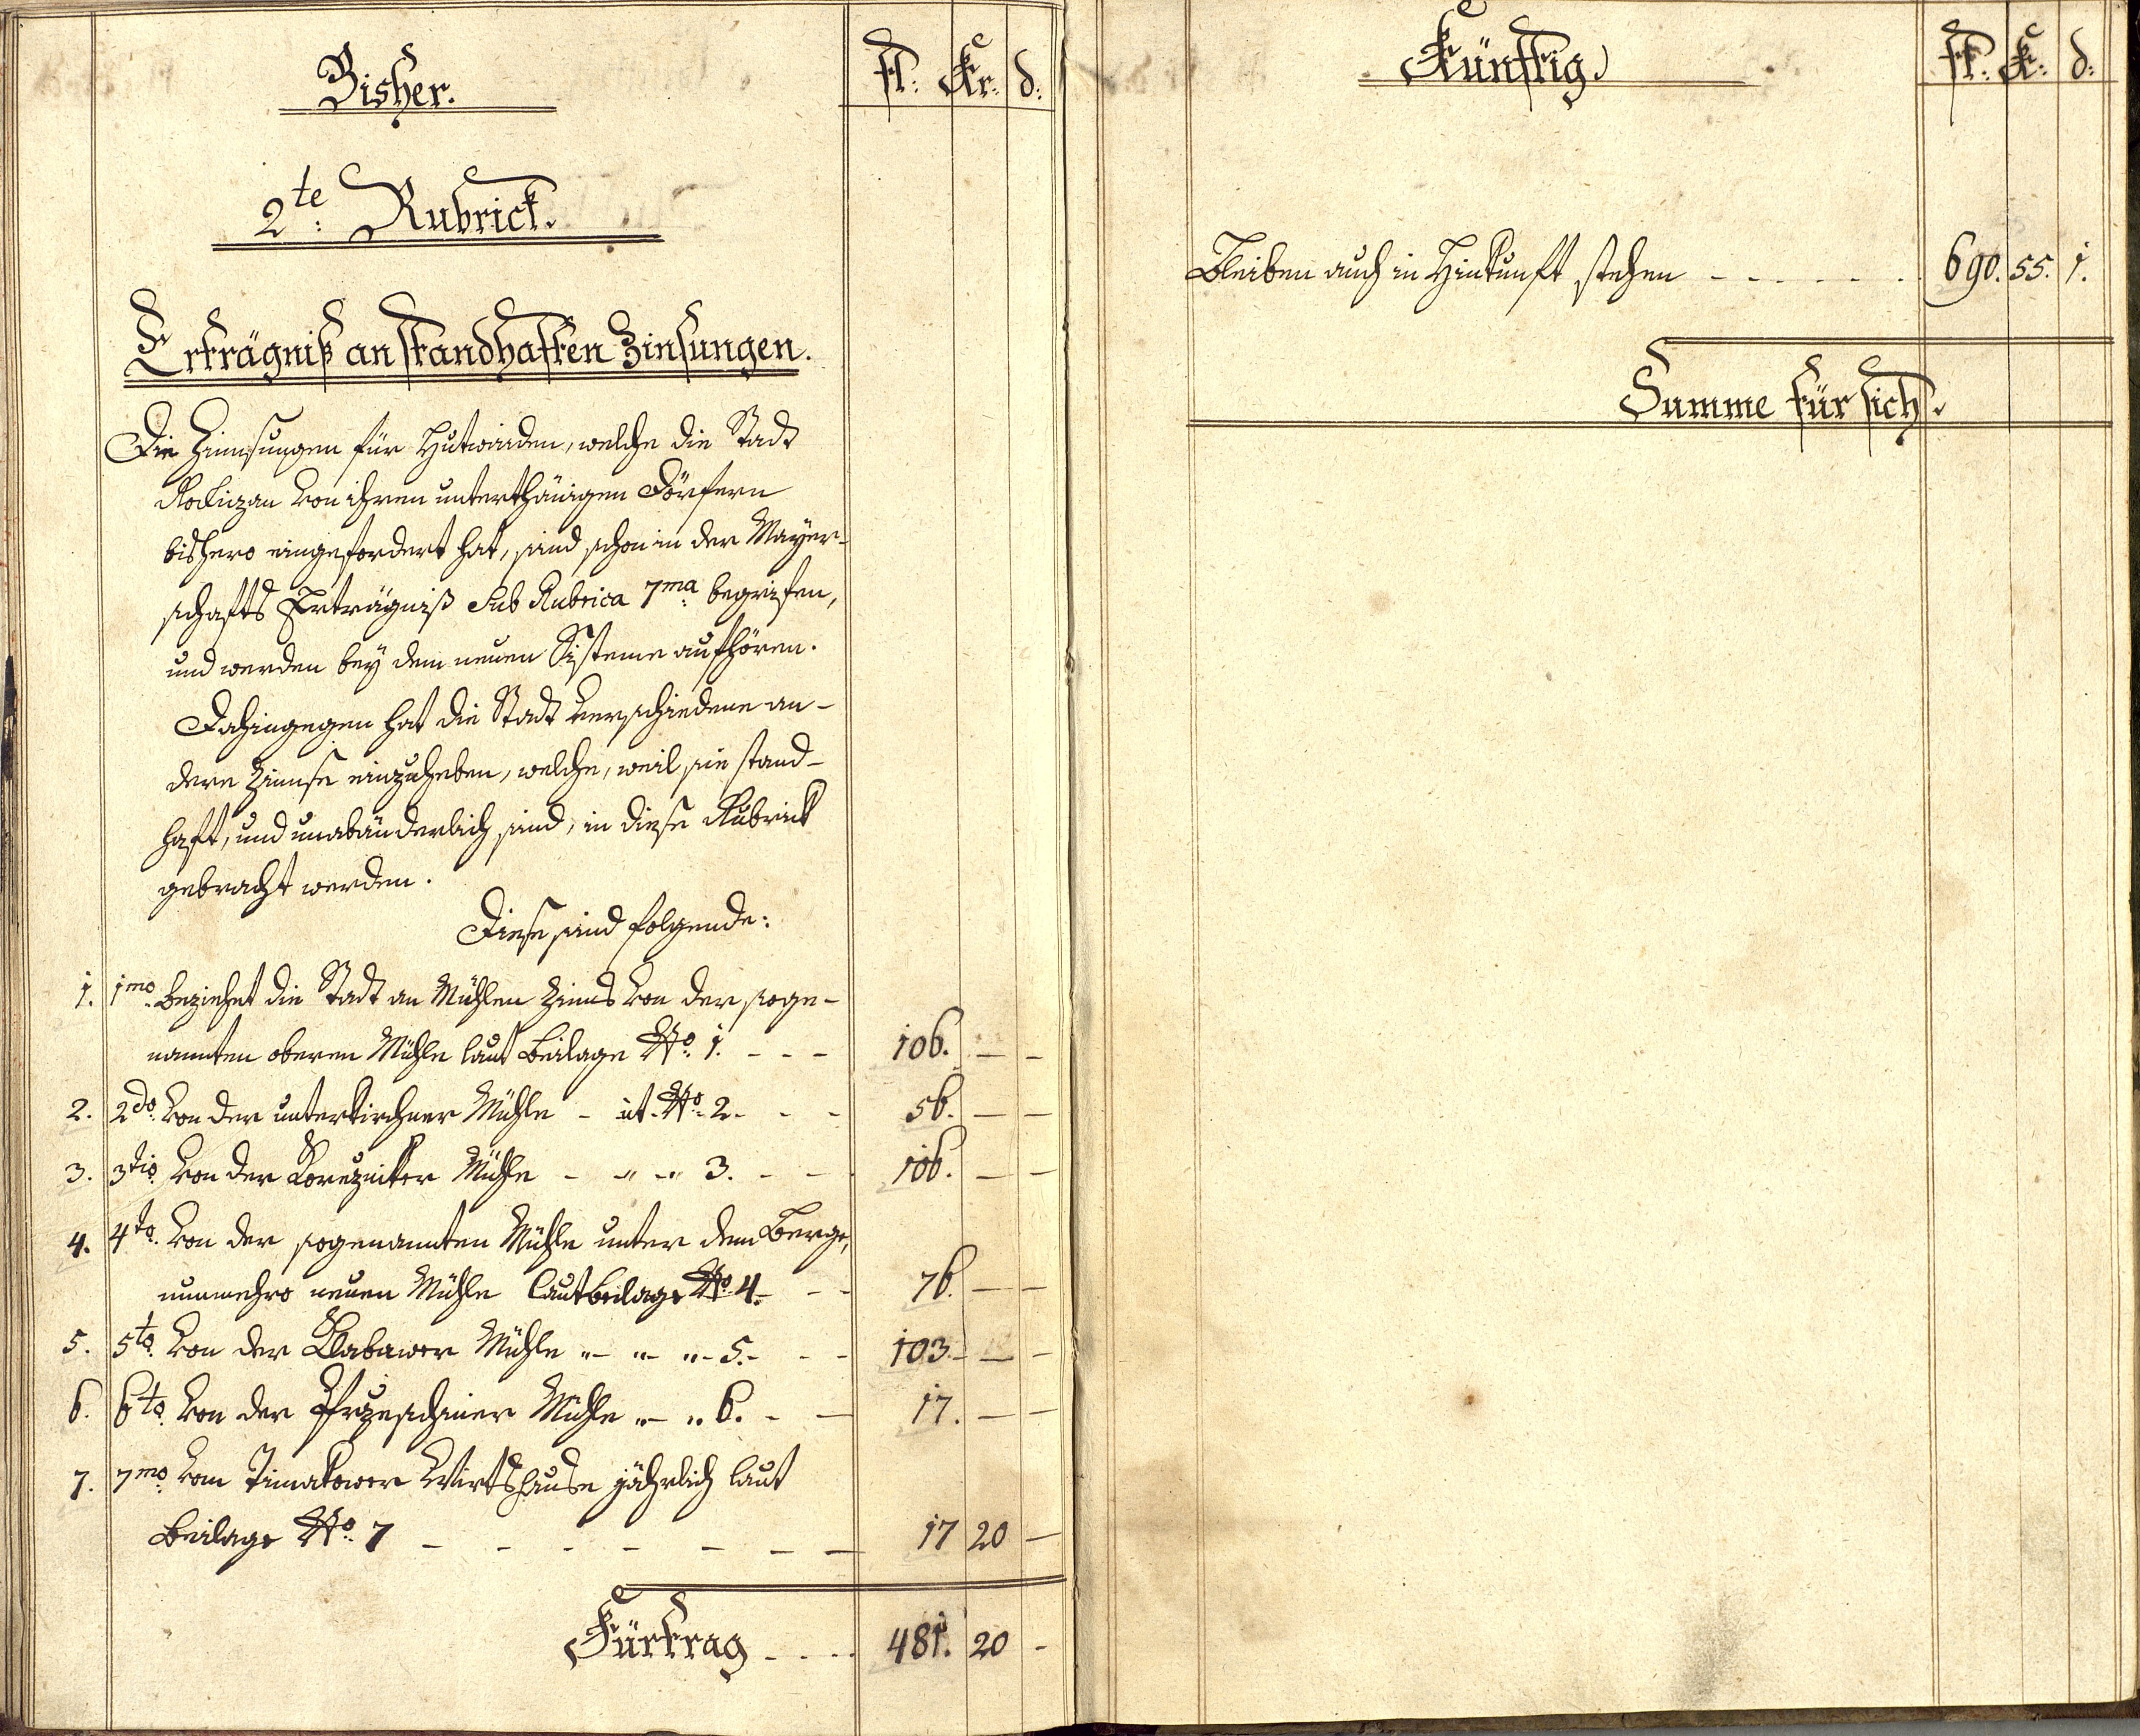 Bisher.
fl: Kr: d:
2te: Rubrick.
Erträgniß an standhaften Zinsungen.
Die Zinnsungen für Hutwaiden, welche die Stadt
Rokizan von ihren unterthänigen Dörfern
bishero eingefordert hat, sind schon in der Mayer-
schafts Erträgniß Sub Rubrica 7ma: begrifen,
und werden beÿ dem neuen Sisteme aufhören.
Dahingegen hat die Stadt verschiedene an-
dere Zinnse einzuheben, welche, weil sie stand-
haft, und unabänderlich sind, in diese Rubrick
gebracht werden.
Diese sind folgende:
1. 1mo: beziehet die Stadt an Mühlen Zinns von der soge-
nannten oberen Mühle laut Beilage No: 1. - - - 106. — —
2. 2do: von der unterkircher Mühle - ut No: 2. - - 56. — —
3. 3tio: von der Mühle - " - " 3. - - 106. — —
4. 4to: von der sogenannten Mühle unter dem Berge,
nunmehro neuen Mühle laut Beilage No 4. - - 76. — —
5. 5to: von der Klabawer Mühle " - " - " - 5. - - 103. — —
6. 6to: von der Mühle " - " 6. - - 17. — —
7. 7mo: vom Timakower Wirtshause jährlich laut
Beilage No: 7 - - - - - - - 17 20 —
Fürtrag - . . . 481. 20 -
Künftig.
fl: K: d:
Bleiben auch in Hinkunft stehen - - - - - - 690. 55. 1.
Summe für sich.